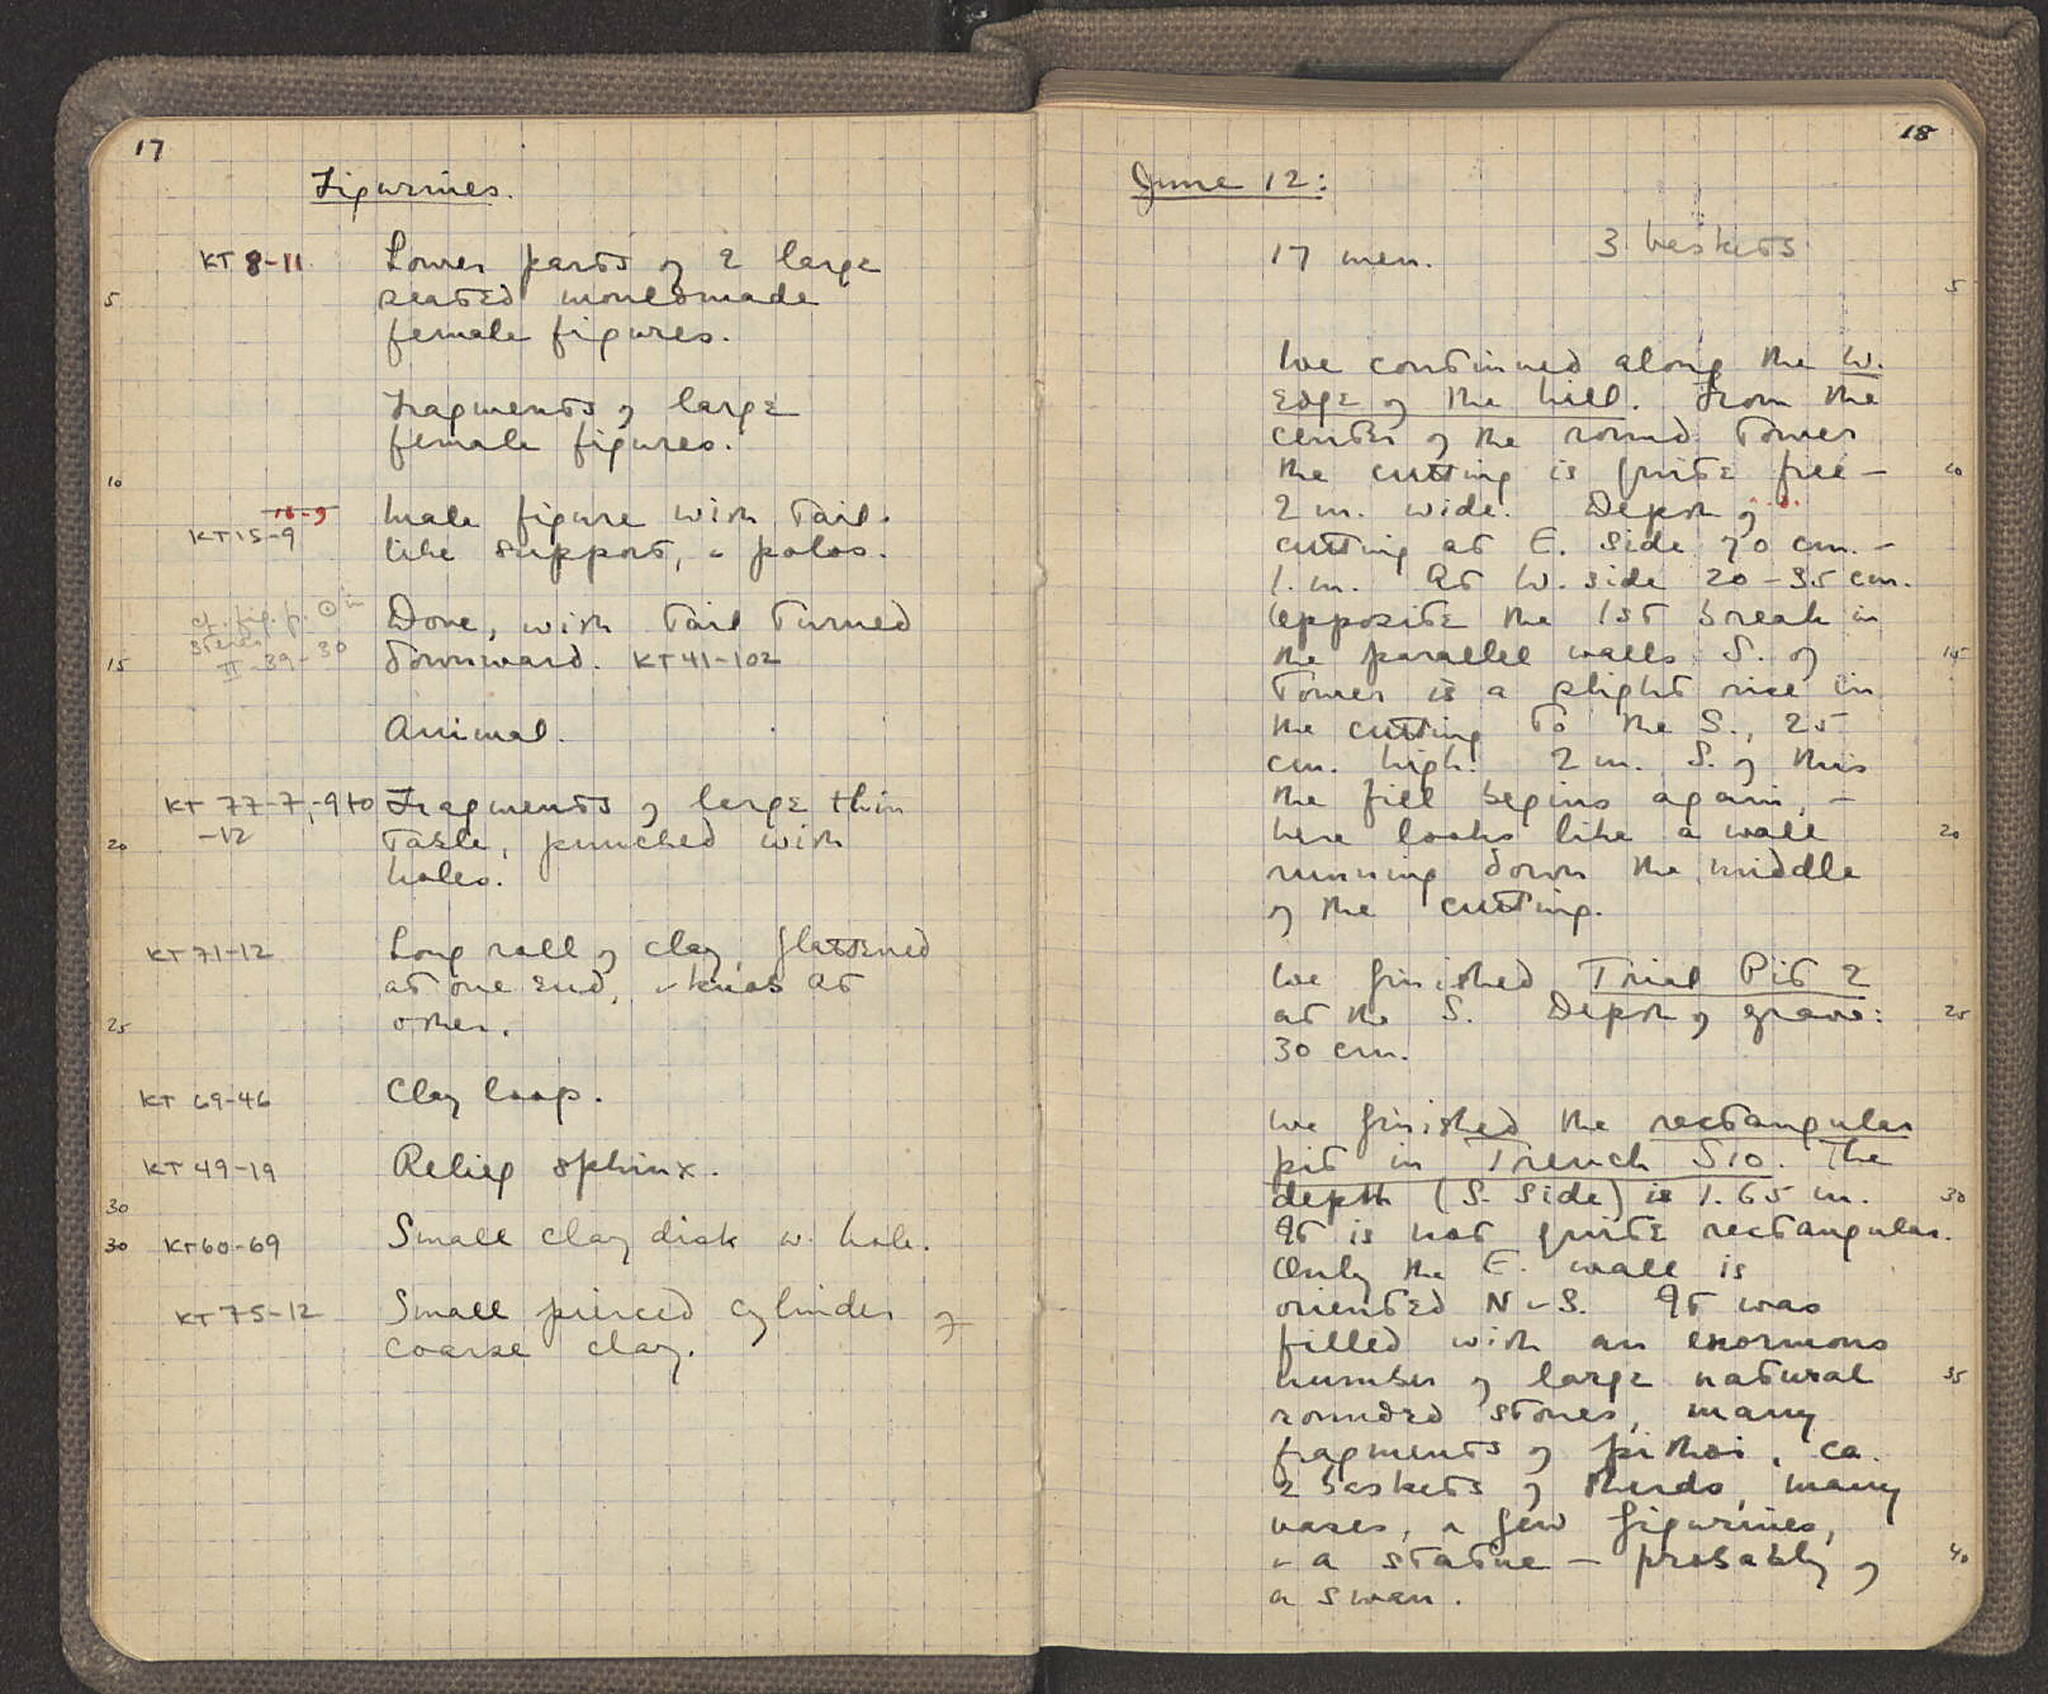 17
Figurines.
KT 8-11 Lower parts of 2 large
5 seated mouldmade
female figures.
Fragments of large
female figures.
10
16-9 Male figure with tail-
KT 15-9 like support, & polos.
cf. fig. p. in Dove, with tail turned
15 stereo II-39-30 downward. KT 41-102
Animal.
KT 77-7, -9 to Fragments of large thin
20 -12 table, punched with
holes.
KT 71-12 Long roll of clay, flattened
at one end, & knob at
25 other.
KT 69-46 Clay loop.
KT 49-19 Relief sphinx.
30
30 KT 60-69 Small clay disk w. hole.
KT 75-12 Small pierced cylinder of
coarse clay.
18
June 12:
17 men. 3 baskets
5
We continued along the W.
edge of the hill. From the
center of the round tower
the cutting is quite free - 10
2 m. wide. Depth of
cutting at E. side 70 cm. -
1. m. At W. side 20-35 cm.
Opposite the 1st break in
the parallel walls S. of 15
Tower is a slight rise in
the cutting to the S., 25
cm. high. 2 m. S. of this
the fill begins again, -
here looks like a wall 20
running down the middle
of the cutting.
We finished Trial Pit 2
at the S. Depth of grave: 25
30 cm.
We finished the rectangular
pit in Trench S10. The
depth (S. side) is 1.65 m. 30
It is not quite rectangular.
Only the E. wall is
oriented N-S. It was
filled with an enormous
number of large natural 35
rounded stones, many
fragments of pithoi, ca.
2 baskets of sherds, many
vases, a few figurines,
& a statue - probably of 40
a swan.